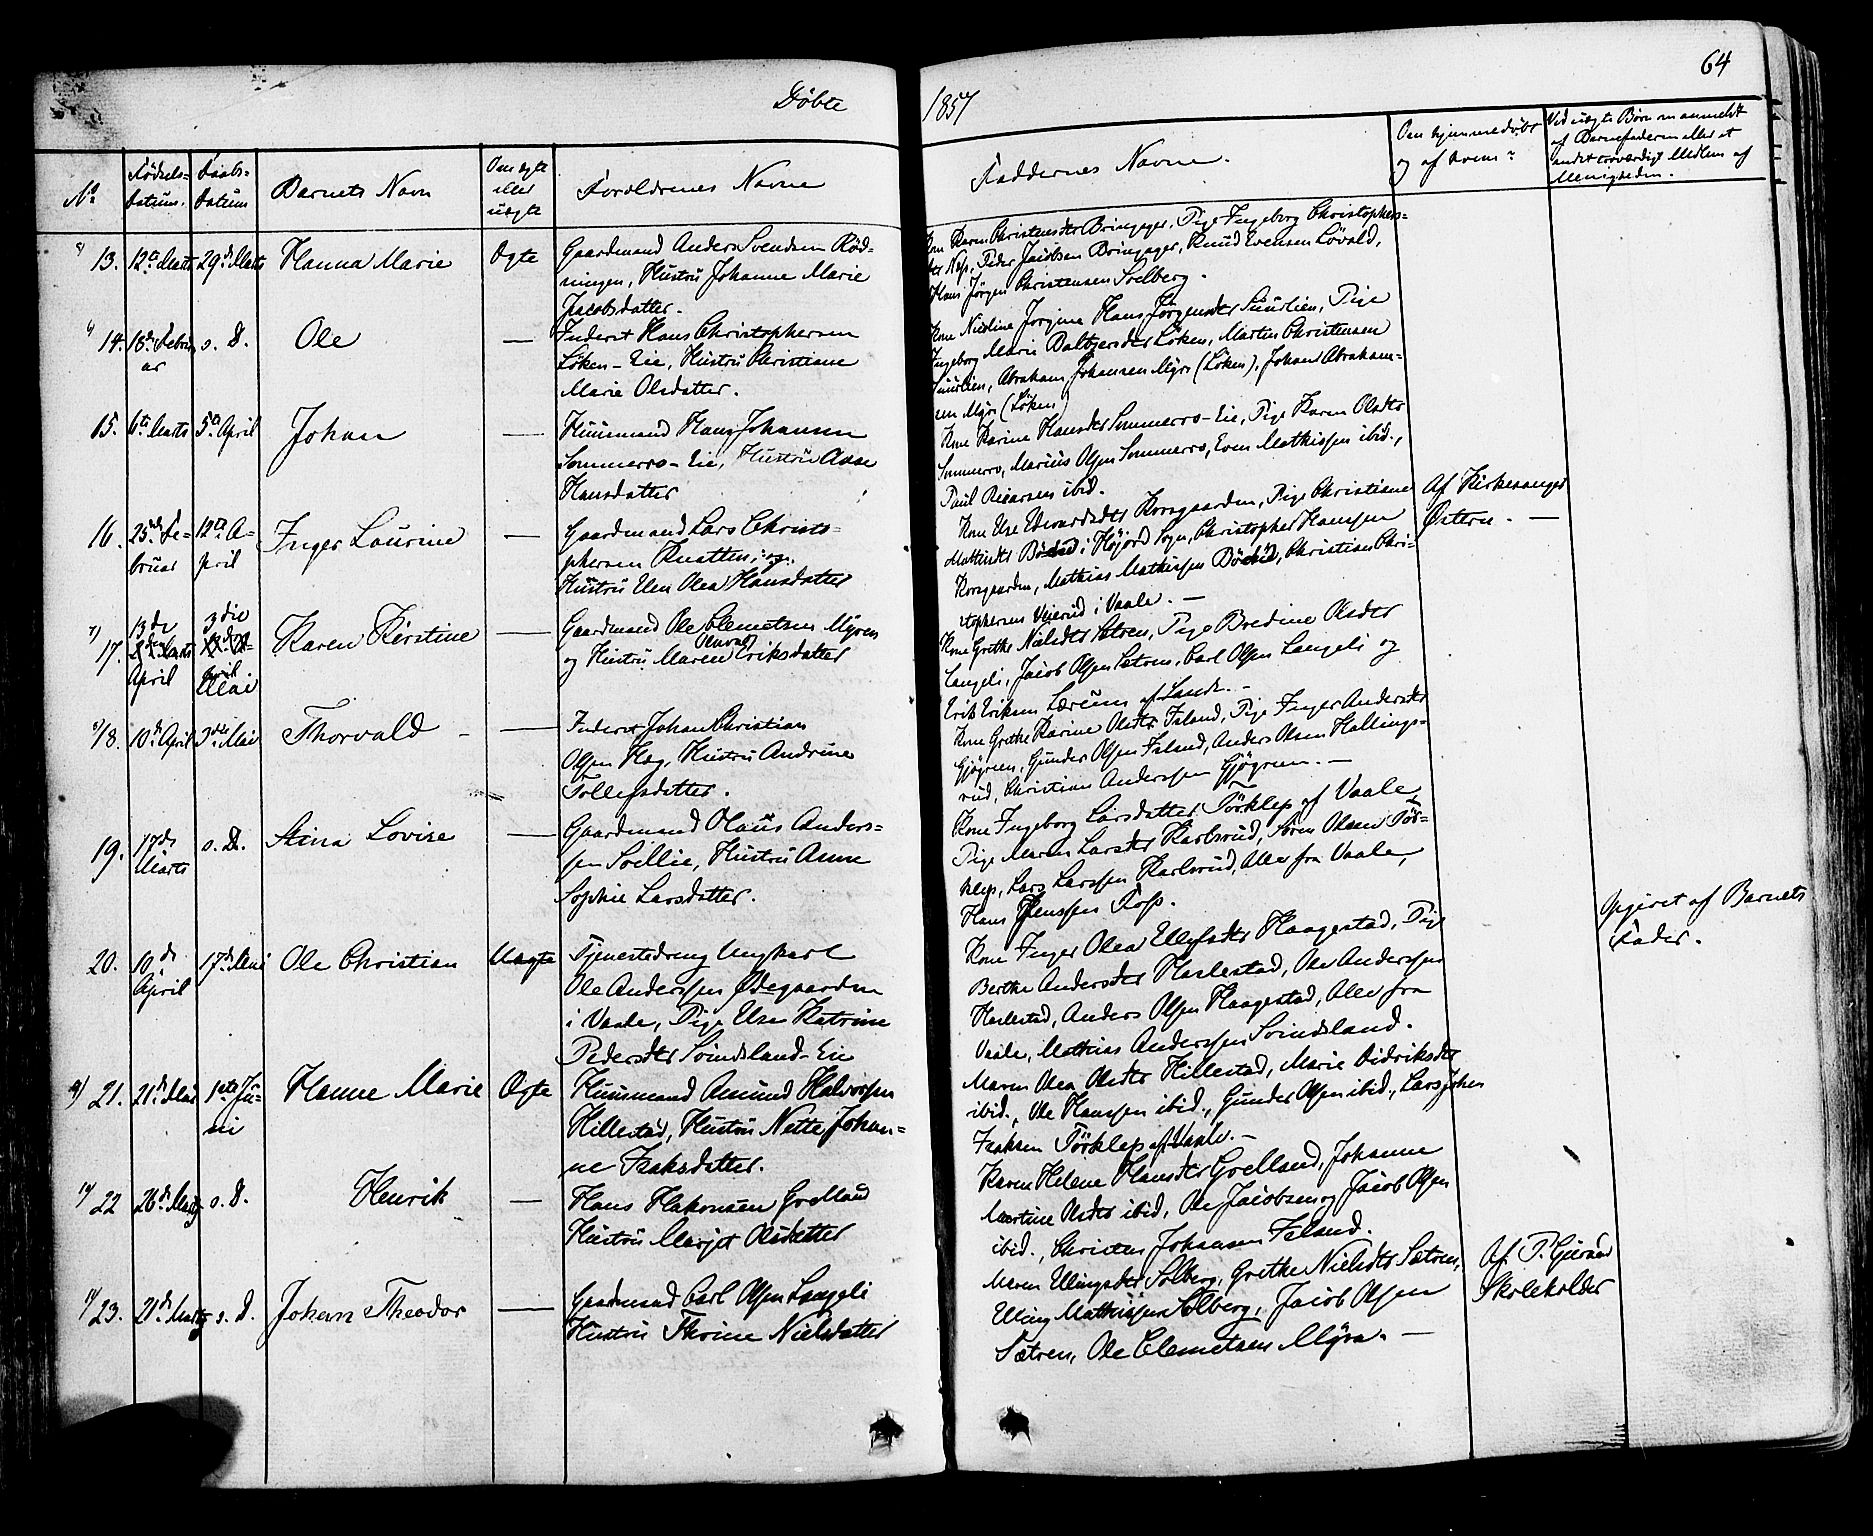 Døbte
1857
64
No
Fødsels-
datum.
Daabs-
datum
Barnets Navn
Om ægte
eller
uægte
Forældrenes Navne
Faddernes Navne.
Om hjemmedøbt
og af hvem?
Ved uægte Børn om anmeldt
af Barnefaderen eller et
andet troværdigt Medlem af
Menigheden.
13. 12te Marts 29de Marts Hanna Marie Ægte
Gaardmand Anders Svendsen Rød-
ningen, Hustru Johanne Marie
Jacobsdatter.
Kone Karen Christensdtr Bringager, Pige Ingeborg Christophers-
dtr Næss, Peder Jacobsen Bringager, Knud Evensen Løvald,
Hans Jørgen Christensen Solberg.
14. 18de Febru-
ar
s. D. Ole —
Inderst Hans Christophersen
Løken-Eie, Hustru Christiane
Marie Olsdatter.
Kone Nicoline Jorgine Hans Jørgensdtr Suurlien, Pige
Ingeborg Marie Baltzersdtr Løken, Martin Christensen
Suurlien, Abraham Johansen Myra (Løken), Johan Abraham-
sen Myra (Løken)
15. 6te Marts 5te April Johan —
Huusmand Hans Johansen
Sommerro-Eie, Hustru Anne
Hansdatter
Kone Karine Hansdtr Sommerro-Eie, Pige Karen Olsdtr
Sommerro, Marius Olsen Sommerro, Even Mathissen ibid.,
Paul ibid.
16. 25de Fe-
bruar
12te A-
pril
Inger Laurine —
Gaardmand Lars Christo-
phersen Knatten, og
Hustru Elen Olea Hansdatter
Kone Else Edvardsdtr Korsgaarden, Pige Christiane
Mathisdtr i Høijord Sogn, Christopher Hansen
Korsgaarden, Mathias Mathissen Christian Chri-
stophersen Veierud i Vaale. —
Af Kirkesanger
Østern. —
17. 13de
April
3die
Mai
Karen Kirstine —
Gaardmand Ole Clemetsen Myren
og Hustru Maren Eriksdatter
Kone Grethe Nielsdtr Sætren, Pige Bredine Olsdtr
Langeli, Jacob Olsen Sætren, Carl Olsen Langeli og
Erik Eriksen Lærum af Sande. —
18. 10de April 3die Mai Thorvald —
Inderst Johan Christian
Olsen Hag, Hustru Andrine
Tollefsdatter.
Kone Grethe Karine Olsdtr Island, Pige Inger Andersdtr
Gjøgreen, Gunder Olsen Island, Anders Olsen Hallings-
rud, Christian Anderssen Gjøgreen. —
19. 17de
Marts
s. D. Stina Lovise —
Gaardmand Olaus Anders-
sen Sollie, Hustru Anne
Sophie Larsdatter.
Kone Ingeborg Larsdatter Tørklep af Vaale,
Pige Maren Larsdtr Karlsrud, Søren Olsen Tør-
klep, Lars Larssen Karlsrud, Alle fra Vaale,
Hans Jenssen Røsp.
20. 10de
April
17de Mai Ole Christian Uægte
Tjenestedreng Ungkarl
Ole Anderssen Ødegaarden
i Vaale, Pige Else Katrine
Pedersdtr Soindsland-Eie
Kone Inger Olea Ellefsdtr Haagestad, Pige
Berthe Andersdtr Haslestad, Ole Anderssen
Haslestad, Anders Olsen Haagestad, Alle fra
Vaale, Mathias Anderssen Soindsland.
Opgivet af Barnets
Fader.
21. 21de Mai 1ste Ju-
ni
Hanne Marie Ægte
Huusmand Amund Halvorsen
Hillestad, Hustru Nette Johan-
ne Isaksdatter.
Maren Olea Olsdtr Hillestad, Marie Didriksdtr
ibid., Ole Hanssen ibid., Gunder Olsen ibid., Lars Johan
Isaksen Tørklep af Vaale. —
22 26de Marts s. D. Henrik —
Hans Hakonsen Grelland
Hustru Marget Olsdatter
Karen Helene Hansdtr Grelland, Johanne
Martine Olsdtr ibid, Ole Jacobsen og Jacob Olsen
ibid., Christen Johansen Island.
23. 21de Marts s. D. Johan Theodor —
Gaardmand Carl Olsen Langeli
Hustru Thrine Nielsdatter
Maren Ellingsdtr Solberg, Grethe Nielsdtr Sætren,
Elling Mathissen Solberg, Jacob Olsen
Sætren, Ole Clemetsen Myra. —
Af P.
Skoleholder